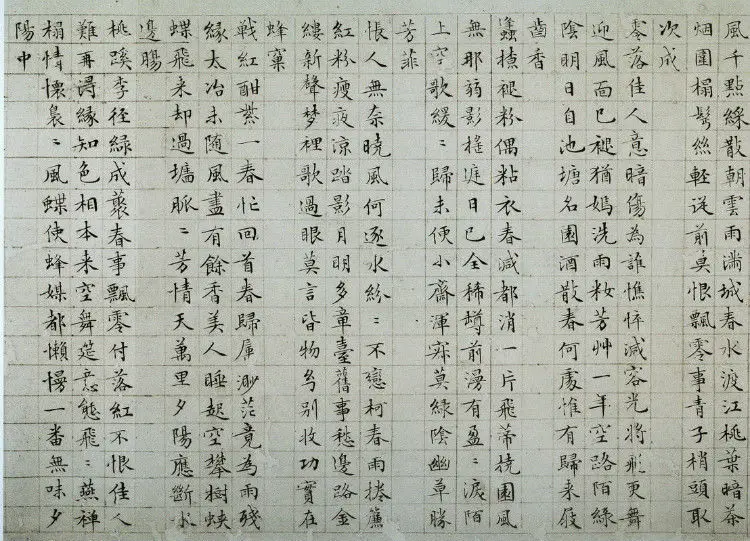 風千點綵散朝雲雨滿城春水渡江桃葉暗茶
烟團榻鬢絲輕從前莫恨飄零事青子梢頭取
次成
零落佳人意暗傷為誰憔悴減容光將飛更舞
迎風面已褪猶嫣洗雨妝芳艸一年空路陌綠
陰明日自池塘名園酒散春何處惟有歸来屐
齒香
蠭撩褪粉偶粘衣春減都消一片飛蒂撓園風
無那弱影搖庭日已全稀樽前漫有盈〻淚陌
上空歌緩〻歸未便小齋渾寂莫綠陰幽草勝
芳菲
悵人無奈曉風何逐水紛〻不戀柯春雨捲簾
紅粉瘦夜涼踏影月明多章臺舊事愁邊路金
縷新聲梦裡歌過眼莫言皆物幻別收功實在
蜂窠
戰紅酣紫一春忙回首春歸屬渺茫竟為雨殘
緣太冶未随風盡有餘香美人睡起空攀樹蛺
蝶飛来却過墻脈〻芳情天萬里夕陽應斷水
邊腸
桃蹊李徑綠成叢春事飄零付落紅不恨佳人
難再得緣知色相本来空舞筵意態飛〻燕禅
榻情懷裊〻風蝶使蜂媒都懶慢一番無味夕
陽中